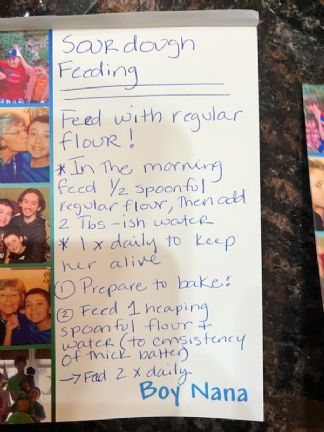 Sourdough
Feeding
Feed with regular
flour!
* In the morning
feed 1/2 spoonful
regular flour, then add
2 Tbs-ish water
* 1 x daily to keep
her alive
① Prepare to bake:
② Feed 1 heaping
spoonful flour +
water (to consistency
of thick batter)
→ Feed 2 x daily
Boy Nana